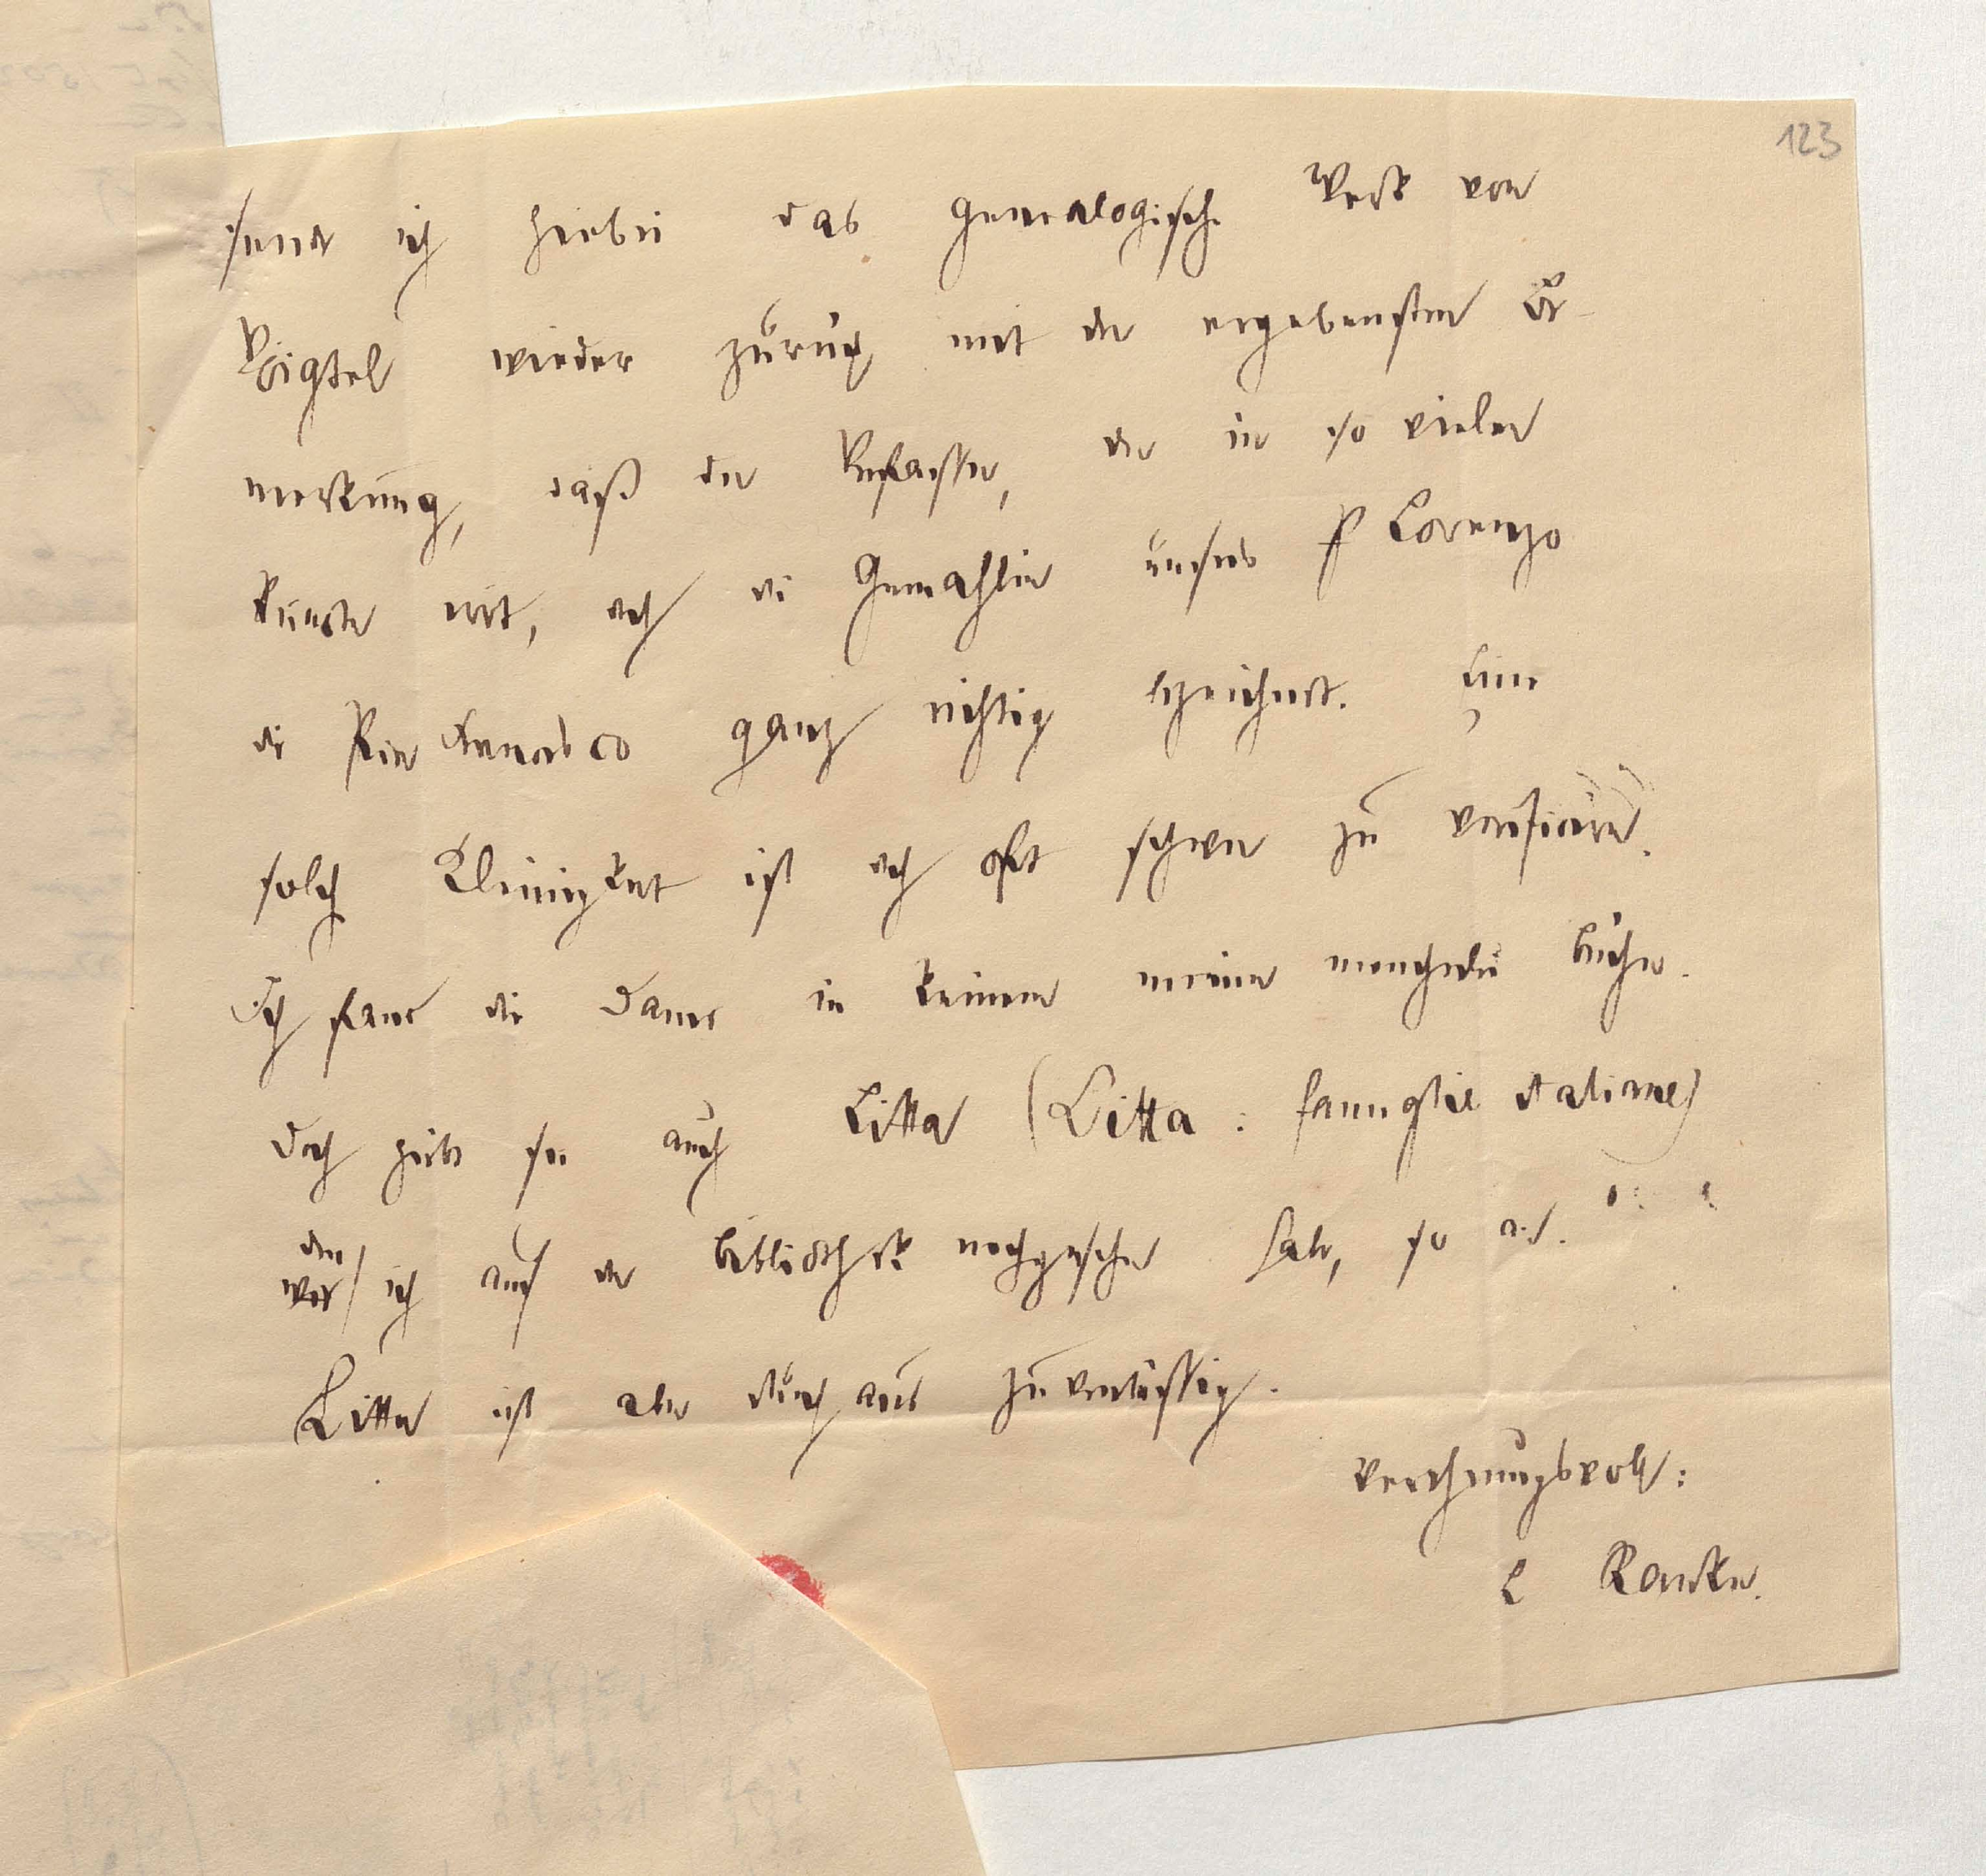 123
sende ich hierbei das genealogische Werk von
Voigtel wieder zurück mit der ergebensten Be-
merkung, daß der Verfasser, der in so vielen
Puncten irrt, doch die Gemahlin unsers P Lorenzo
die ganz richtig bezeichnet. Eine
solche Kleinigkeit ist doch oft schwer zu verificiren.
Ich fand die Dame in keinem meiner Bücher.
Doch giebt sie auch Litta (Litta: famiglie italiane)
den
wer ich auf der Bibliothek nachgesehen habe, so an.
Litta ist aber durchaus zuverlässig.
Verehrungsvoll:
L Ranke.